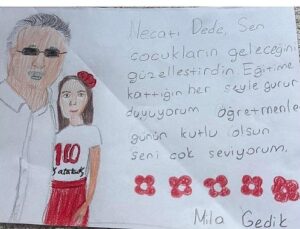 Necati Dede, Sen
çocukların geleceğini
güzelleştirdin. Eğitime
kattığın her şeyle gurur
duyuyorum öğretmenler
günün kutlu olsun
seni çok seviyorum.
10
Mila Gedik